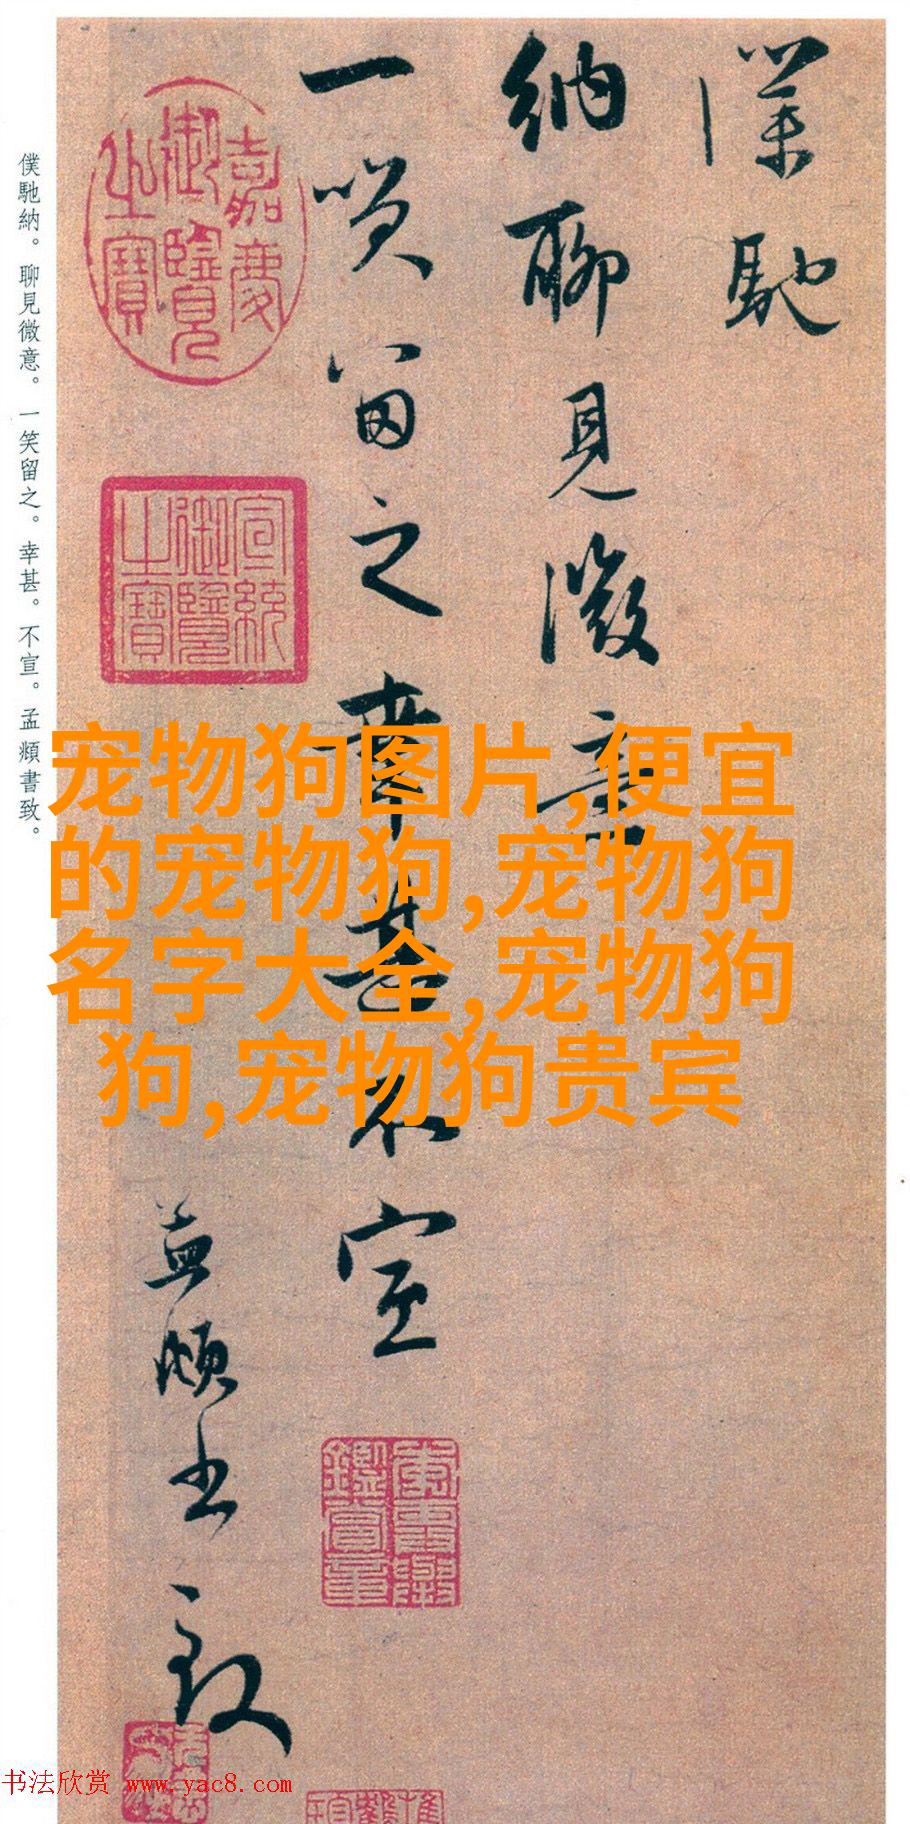 僕馳
納聊見微意
一笑留之幸甚不宣
孟頫書致
嘉慶御覽之寶
宣統御覽之寶
僕馳納。聊見微意。一笑留之。幸甚。不宣。孟頫書致。
宠物狗图片,便宜
的宠物狗,宠物狗
名字大全,宠物狗
狗,宠物狗贵宾
书法欣赏 www.yac8.com